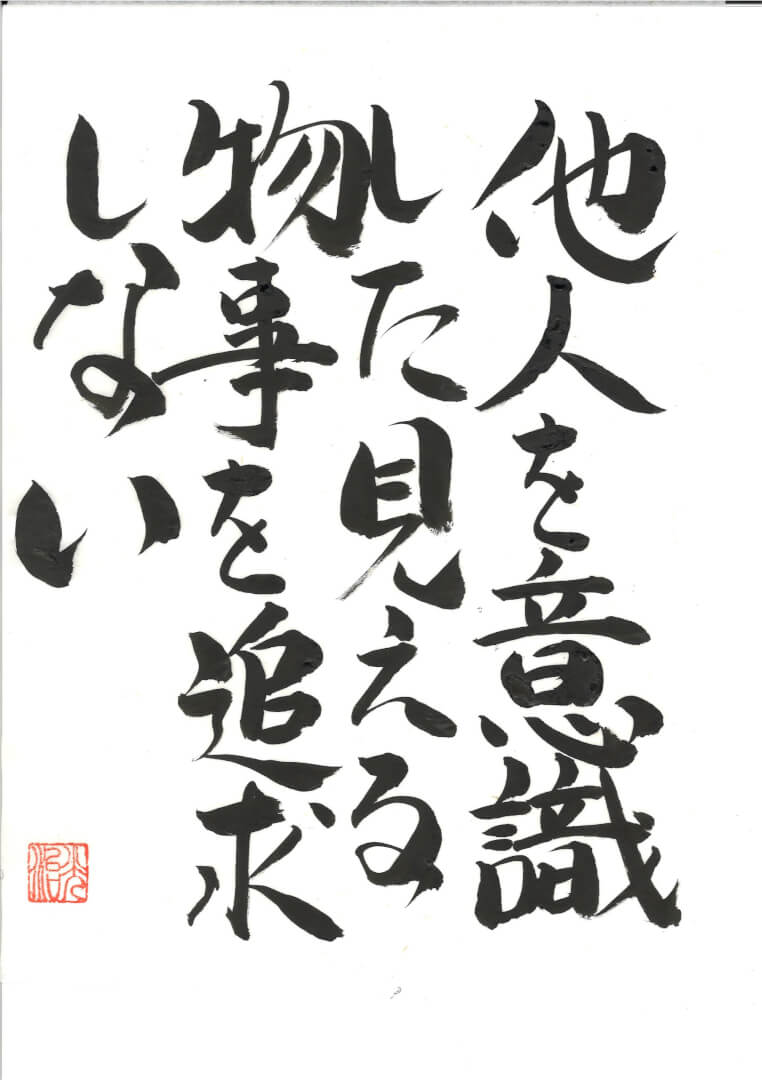 他人を意識
した見える
物事を追求
しない